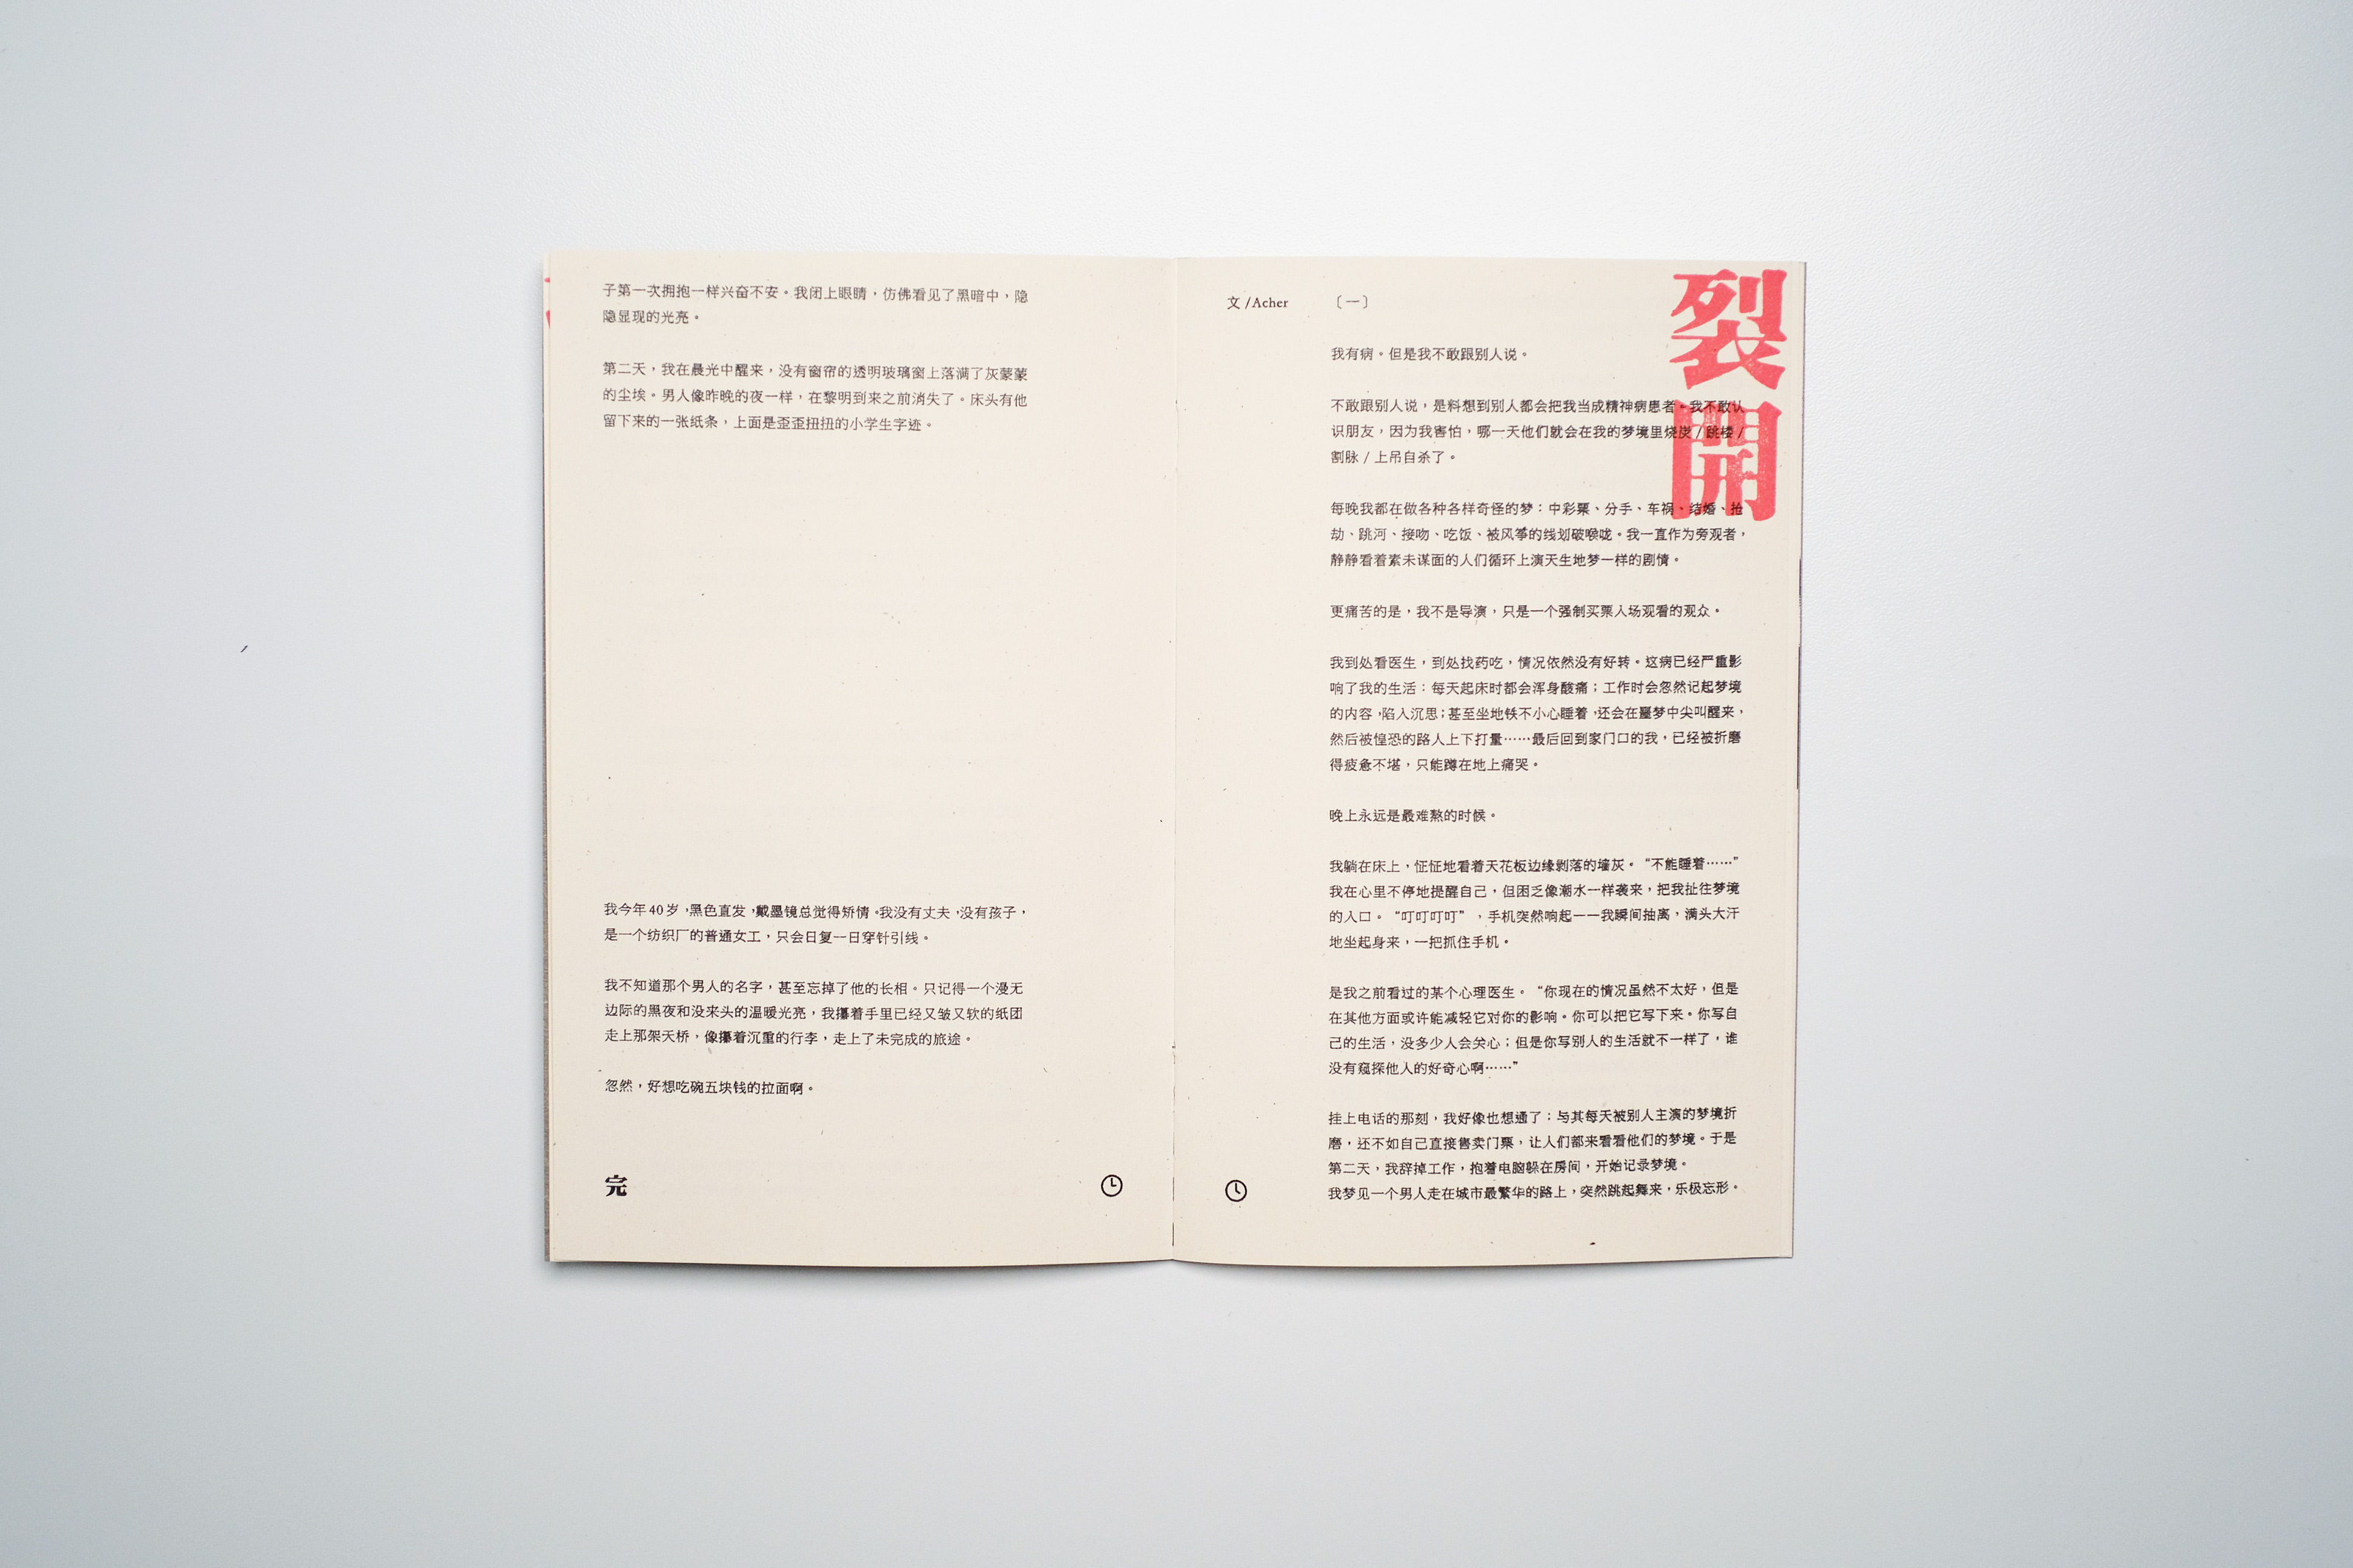 子第一次拥抱一样兴奋不安。我闭上眼睛，仿佛看见了黑暗中，隐
隐显现的光亮。
第二天，我在晨光中醒来，没有窗帘的透明玻璃窗上落满了灰蒙蒙
的尘埃。男人像昨晚的夜一样，在黎明到来之前消失了。床头有他
留下来的一张纸条，上面是歪歪扭扭的小学生字迹。
我今年40岁，黑色直发，戴墨镜总觉得矫情。我没有丈夫，没有孩子，
是一个纺织厂的普通女工，只会日复一日穿针引线。
我不知道那个男人的名字，甚至忘掉了他的长相。只记得一个漫无
边际的黑夜和没来头的温暖光亮，我攥着手里已经又皱又软的纸团
走上那架天桥，像攥着沉重的行李，走上了未完成的旅途。
忽然，好想吃碗五块钱的拉面啊。
完
裂開
文 /Acher
〔一〕
我有病。但是我不敢跟别人说。
不敢跟别人说，是料想到别人都会把我当成精神病患者。我不敢认
识朋友，因为我害怕，哪一天他们就会在我的梦境里烧炭 / 跳楼 /
割脉 / 上吊自杀了。
每晚我都在做各种各样奇怪的梦：中彩票、分手、车祸、结婚、抢
劫、跳河、接吻、吃饭、被风筝的线划破喉咙。我一直作为旁观者，
静静看着素未谋面的人们循环上演天生地梦一样的剧情。
更痛苦的是，我不是导演，只是一个强制买票入场观看的观众。
我到处看医生，到处找药吃，情况依然没有好转。这病已经严重影
响了我的生活：每天起床时都会浑身酸痛；工作时会忽然记起梦境
的内容，陷入沉思；甚至坐地铁不小心睡着，还会在噩梦中尖叫醒来，
然后被惶恐的路人上下打量……最后回到家门口的我，已经被折磨
得疲惫不堪，只能蹲在地上痛哭。
晚上永远是最难熬的时候。
我躺在床上，怔怔地看着天花板边缘剥落的墙灰。“不能睡着……”
我在心里不停地提醒自己，但困乏像潮水一样袭来，把我扯往梦境
的入口。“叮叮叮叮”，手机突然响起——我瞬间抽离，满头大汗
地坐起身来，一把抓住手机。
是我之前看过的某个心理医生。“你现在的情况虽然不太好，但是
在其他方面或许能减轻它对你的影响。你可以把它写下来。你写自
己的生活，没多少人会关心；但是你写别人的生活就不一样了，谁
没有窥探他人的好奇心啊……”
挂上电话的那刻，我好像也想通了：与其每天被别人主演的梦境折
磨，还不如自己直接售卖门票，让人们都来看看他们的梦境。于是
第二天，我辞掉工作，抱着电脑躲在房间，开始记录梦境。
我梦见一个男人走在城市最繁华的路上，突然跳起舞来，乐极忘形。